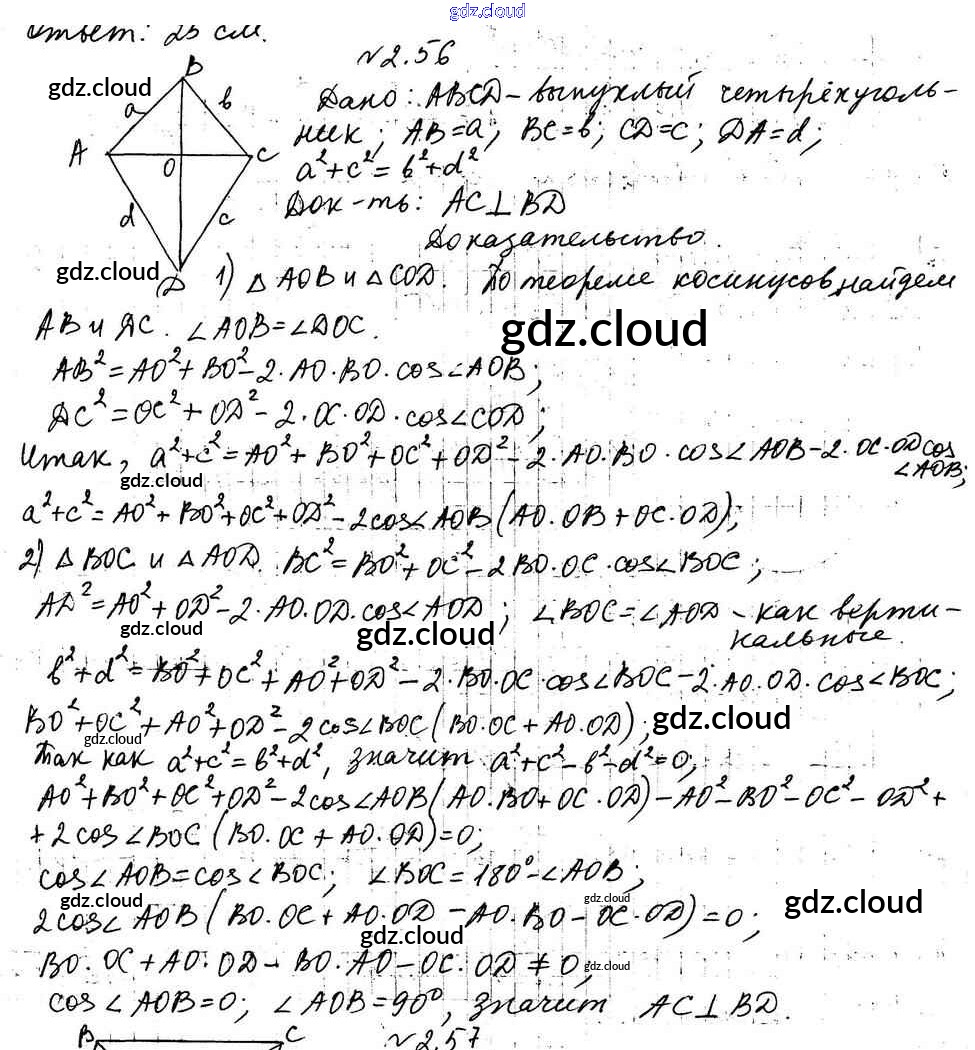 gdz.cloud
Ответ: 25 см.
№2.56
B
gdz.cloud
a
b
A
O
C
d
c
D
gdz.cloud
Дано: ABCD - выпуклый четырёхуголь-
ник; AB=a; BC=b; CD=c; DA=d;
a²+c²=b²+d²
Док-ть: AC⊥BD
Доказательство.
1) △AOB и △COD. По теореме косинусов найдём
AB и ДC. ∠AOB=∠DOC.
gdz.cloud
AB²=AO²+BO²-2·AO·BO·cos∠AOB;
ДC²=OC²+OD²-2·OC·OD·cos∠COD;
Итак, a²+c²=AO²+BO²+OC²+OD²-2·AO·BO·cos∠AOB-2·OC·OD cos
∠AOB;
gdz.cloud
gdz.cloud
a²+c²=AO²+BO²+OC²+OD²-2cos∠AOB(AO·OB+OC·OD);
2) △BOC и △AOD. BC²=BO²+OC²-2BO·OC·cos∠BOC;
gdz.cloud
AD²=AO²+OD²-2·AO·OD·cos∠AOD; ∠BOC=∠AOD - как верти-
кальные.
gdz.cloud
gdz.cloud
b²+d²=BO²+OC²+AO²+OD²-2·BO·OC·cos∠BOC-2·AO·OD·cos∠BOC;
BO²+OC²+AO²+OD²-2cos∠BOC(BO·OC+AO·OD);
gdz.cloud
gdz.cloud
Так как a²+c²=b²+d², значит a²+c²-b²-d²=0;
AO²+BO²+OC²+OD²-2cos∠AOB(AO·BO+OC·OD)-AO²-BO²-OC²-OD²+
+2cos∠BOC(BO·OC+AO·OD)=0;
cos∠AOB=cos∠BOC; ∠BOC=180°-∠AOB;
gdz.cloud
gdz.cloud
gdz.cloud
2cos∠AOB(BO·OC+AO·OD-AO·BO-OC·OD)=0;
gdz.cloud
BO·OC+AO·OD-BO·AO-OC·OD≠0;
gdz.cloud
cos∠AOB=0; ∠AOB=90°, значит AC⊥BD.
B
C
№2.57